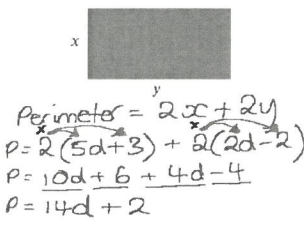 x
y
Perimeter = 2x + 2y
P = 2(5d+3) + 2(2d-2)
P = 10d + 6 + 4d - 4
P = 14d + 2